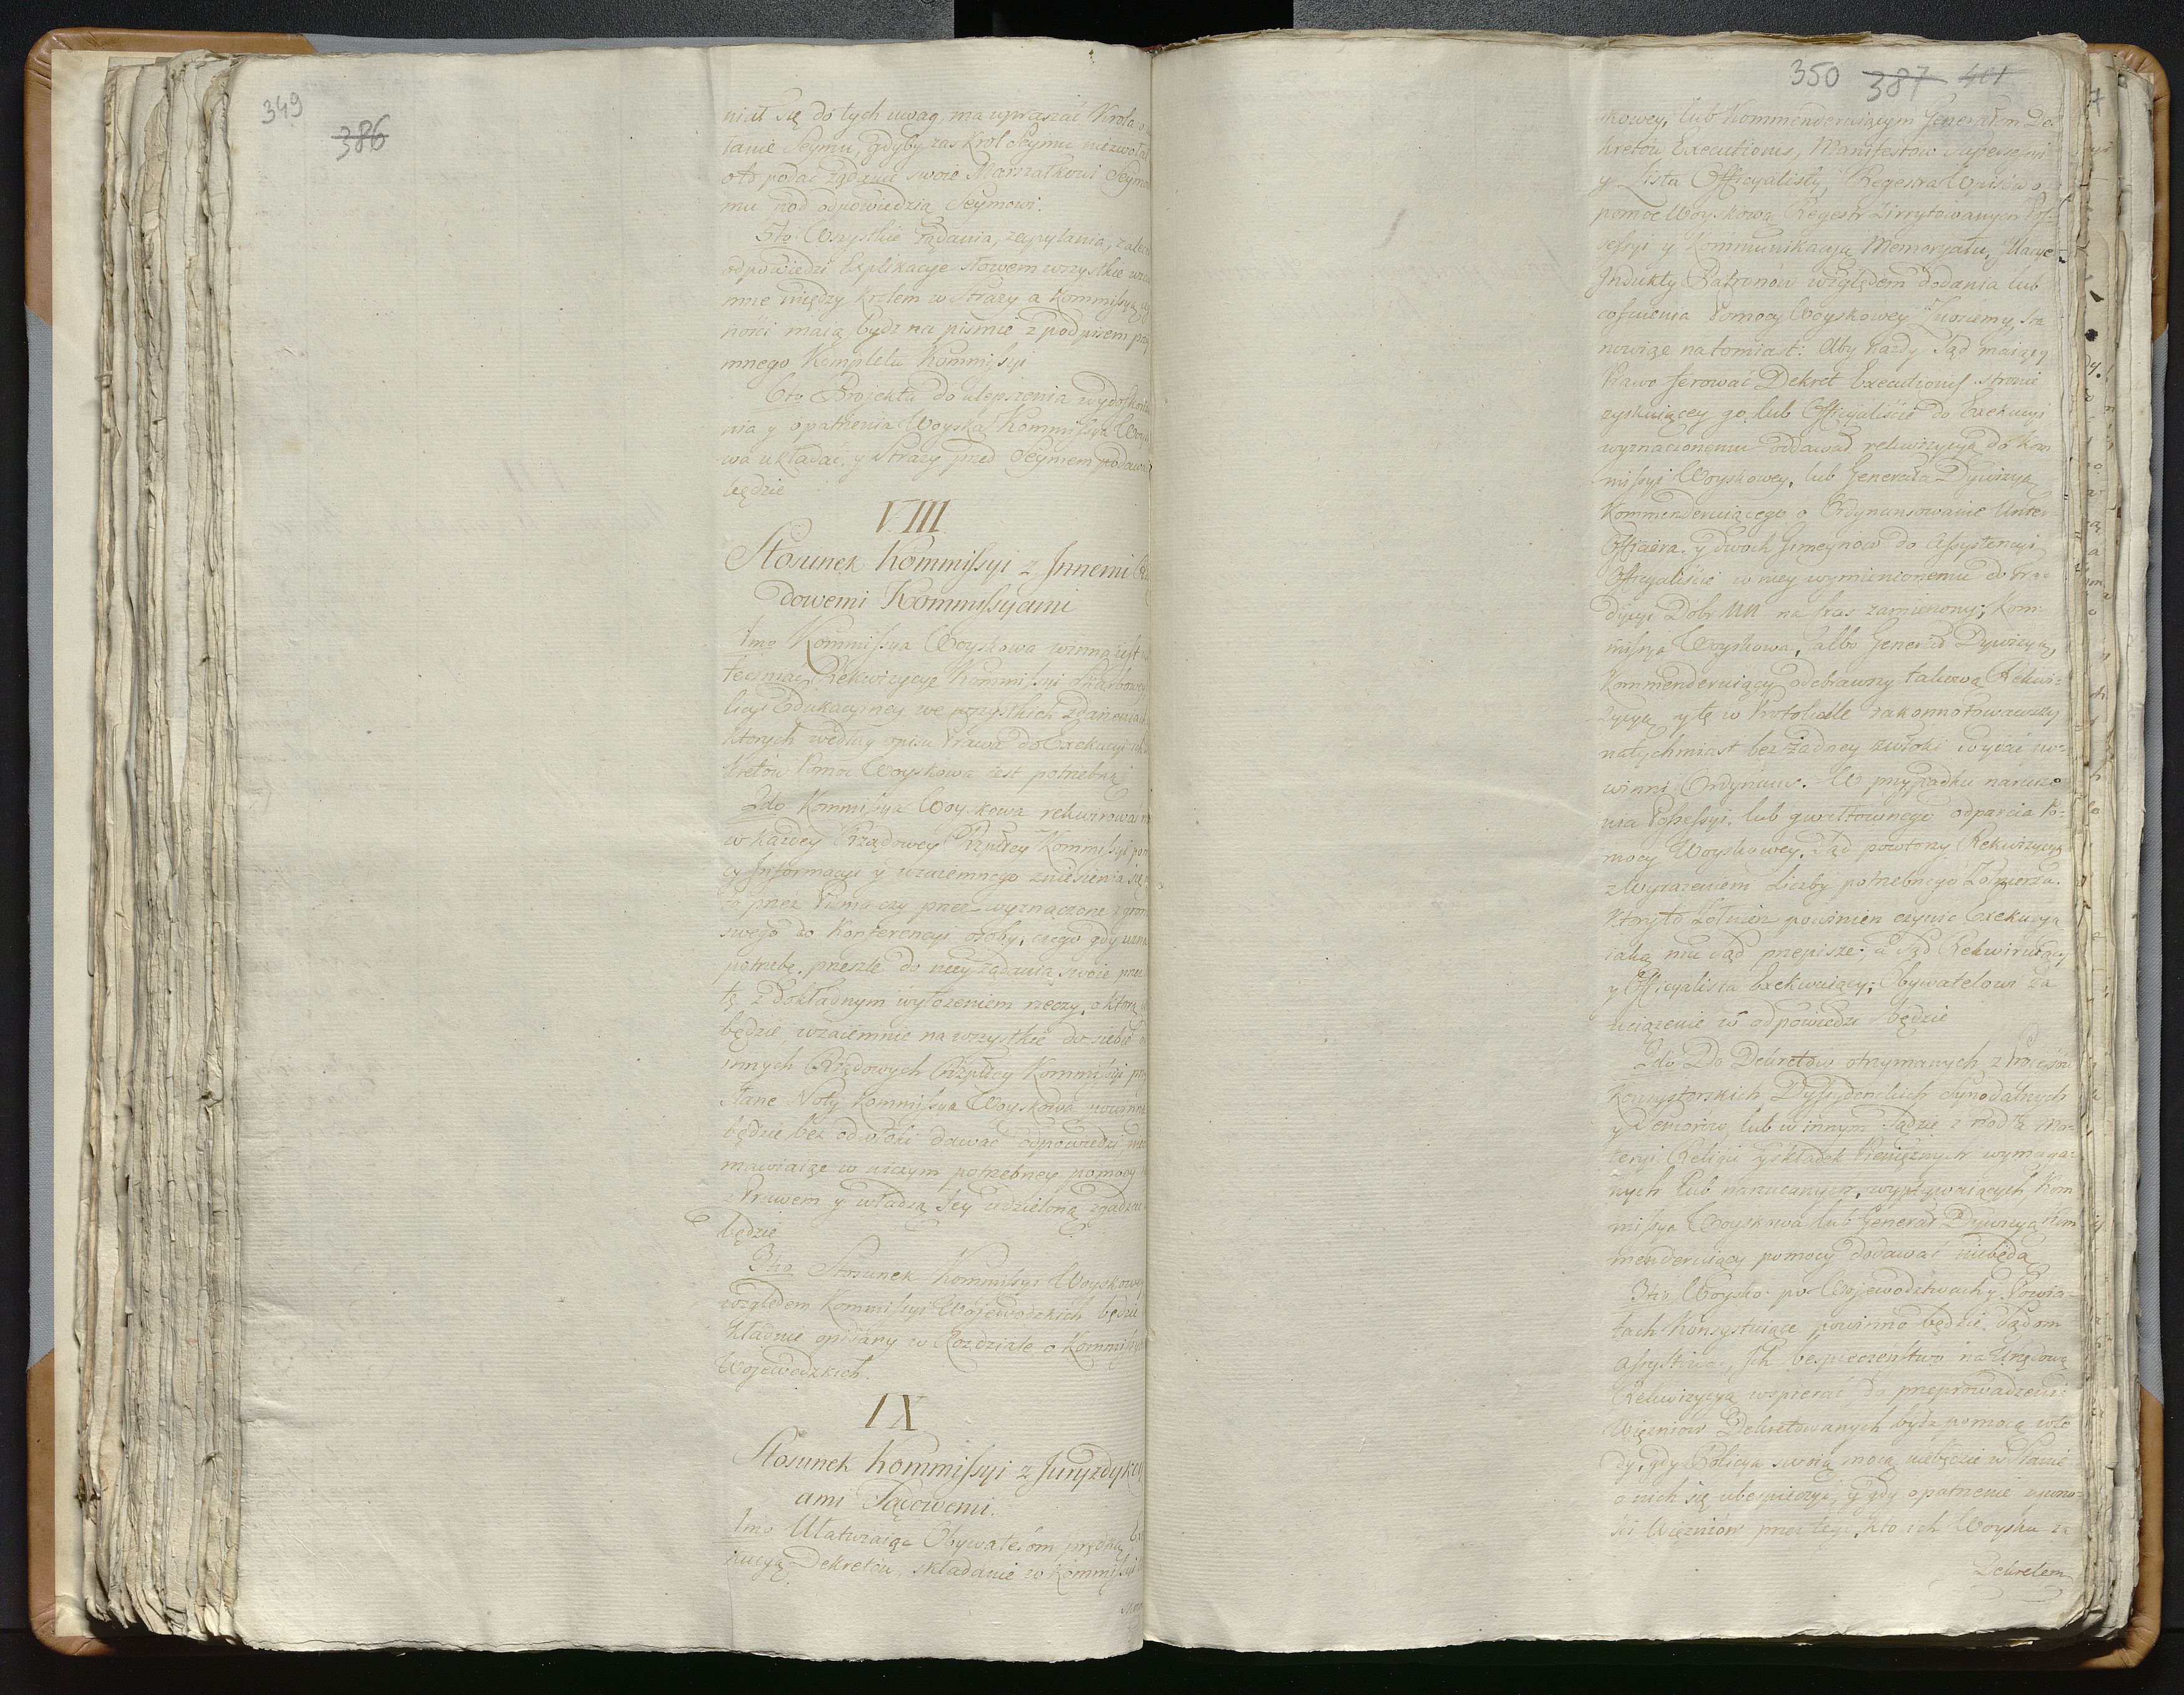 349
386
niał się do tych uwag, ma upraszać Krola o
łanie Seymu, gdyby zas Krol Seymu niezwołał
podać żądanie swoie Marszałkowi Seymo
mu pod odpowiedzią Seymowi.
5to Wszystkie żądania, zapytania, zalec
odpowiedzi Explikacye słowem wszystkie wza
mne między Krolem w Strazy a Kommissyą
ności maią bydz na pismie z podpisem
mnego Kompletu Kommissyi
6to Projekta do ulepszenia wydoskona
nia y opatrzenia Woyska Kommissya Woys
wa układać, y Strazy przed Seymem podawać
będzie
VIII
Stosunek Kommissyi z Innemi
dowemi Kommissyami
1mo Kommissya Woyskowa winna iest
Rekwizycye Kommissyi Skarbowey
licyi Edukacyiney we wszystkich zdarzeniach
ktorych według opisu Prawa do Exekucyi
kretow Pomoc Woyskowa iest potrzebna
2do Kommissya Woyskowa rekwirować
w kazdey Rządowey Rzpltey Kommissyi pom
cy Informacyi y wzaiemnego zniesienia się
przez Pisma czy przez wyznaczone z gron
swego do Konferencyi osoby, czego gdy uzna
potrzebę, przeszle do niey żądania swoie przez
tę z dokładnym wyłozeniem rzeczy, o którą
będzie, wzaiemnie na wszystkie do siebie
innych Rządowych Rzpltey Kommissyi prze
słane Noty Kommissya Woyskowa powinna
będzie bez odwłoki dawać odpowiedzi nie
mawiaiąc w niczym potrzebney pomocy
z Prawem y władzą Jey udzieloną zgadzać
będzie
3tio Stosunek Kommissyi Woyskowey
względem Kommissyi Wojewodzkich będzie
kładnie opisany w Rozdziale o Kommissyach
Wojewodzkich.
IX
Stosunek Kommissyi z Juryzdykcy
ami Sądowemi.
1mo Ułatwiaiąc Obywatelom prędką
kucyą Dekretow, składanie w Kommissyi
350 387 401
kowey, lub Kommenderuiącym Generałem De
kretow Executionis, Manifestow
y Lista Officyalisty, Regestra Wpisow o
pomoc Woyskową Regestr Zirrytowanych Pos
sessyi y Kommunikacyą Memoryału, Racye
Indukty Patronow względem dodania lub
cofnienia Pomocy Woyskowey Znosiemy, sta
nowiąc natomiast: Aby kazdy Sąd maiący
Prawo ferować Dekret Executionis stronie
zyskuiącey go lub Officyaliście do Exekucyi
wyznaczonemu oddawał rekwizycyą do Kom
missyi Woyskowey, lub Generała Dywizyą
Kommenderuiącego o Ordynansowanie Unter
Officiera, y dwoch Gimeynow do Assystencyi
Officyaliście w niey wymienionemu do tra
dycyi Dobr NN na czas zamierzony; Kom
missya Woyskowa, albo Generał Dywizyą,
Kommenderuiący odebrawszy takową Rekwi
zycyą y tę w Protokule zakonnotowawszy
natychmiast bez żadney zwłoki wydać po
winni Ordynans. W przypadku narusze
nia Possessyi, lub gwałtownego odparcia Po
mocy Woyskowey, Sąd powtorzy Rekwizycyą
z Wyrazeniem Liczby potrzebnego Zołnierza.
Który to Zołnierz powinien czynić Exekucyą
iaką mu Sąd przepisze; a Sąd Rekwiruiący
y Officyalista Exekwuiący; Obywatelowi za
uciążenie w odpowiedzi będzie
2do Do Dekretow otrzymanych z Processow
Konsystorskich Dyssydenckich Synodalnych
y Seniorow, lub w innym Sądzie z rzodła Ma
teryi Religii y składek Pieniężnych wymaga
nych lub narzucanych, wypływaiących, Kom
missya Woyskowa lub Generał Dywizyą Kom
menderuiący pomocy dodawać niebędą
3tio Woysko po Wojewodztwach y Powia
tach Konsystuiące powinno będzie Sądom
assystować, Ich bespieczeństwo na Urzędową
Rekwizycyą wspierać do przeprowadzenia
Więzniow Dekretowanych bydz pomocą wte
dy, gdy Policya swoią mocą niebędzie w stanie
o nich się ubespieczyć, y gdy opatrzenie żywno
ści Więzniow przez tego, kto ich Woysku za
Dekretem